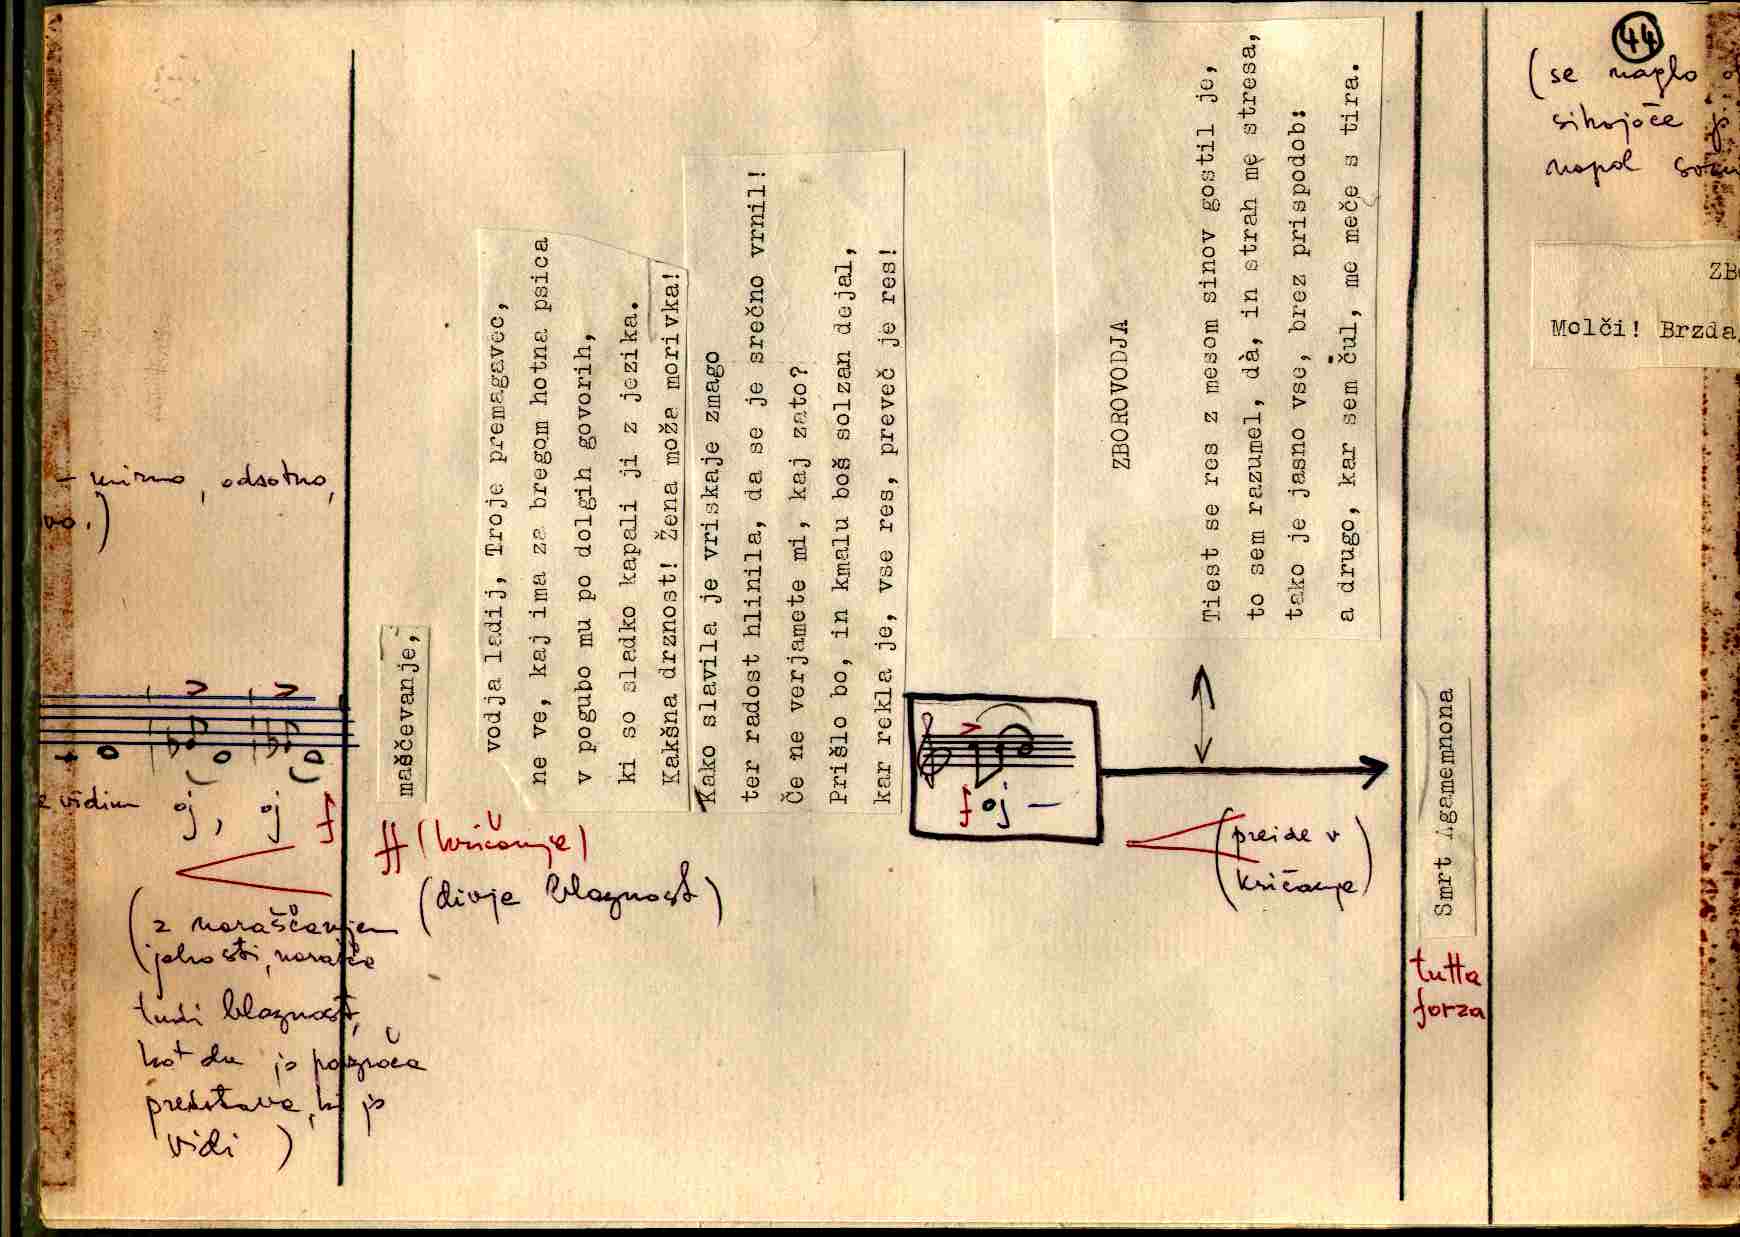 44
(se naglo
sikajoče
napol
– mirno, odsotno,
vidim
oj, oj f
(z naraščanjem
jakosti, narašča
tudi blaznost,
kot da jo povzroča
predstava, ki jo
vidi)
maščevanje,
ff (kričanje)
(divja blaznost)
vodja ladij, Troje premagavec,
ne ve, kaj ima za bregom hotna psica
v pogubo mu po dolgih govorih,
ki so sladko kapali ji z jezika.
Kakšna drznost! Žena moža morivka!
Kako slavila je vriskaje zmago
ter radost hlinila, da se je srečno vrnil!
Če ne verjamete mi, kaj zato?
Prišlo bo, in kmalu boš solzan dejal,
kar rekla je, vse res, preveč je res!
f oj –
ZBOROVODJA
Tiest se res z mesom sinov gostil je,
to sem razumel, dà, in strah me stresa,
tako je jasno vse, brez prispodob:
a drugo, kar sem čul, me meče s tira.
(preide v
kričanje)
Smrt Agamemnona
tutta
forza
Molči! Brzda